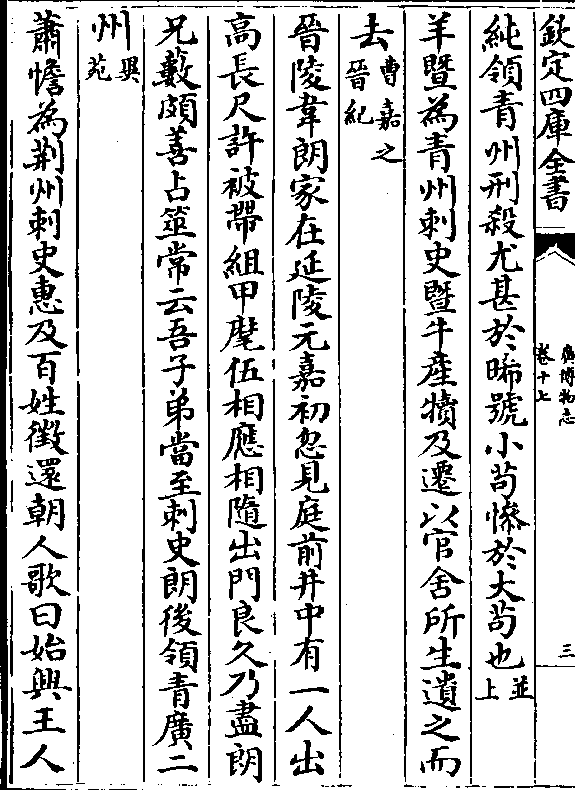 欽定四庫全書
廣博物志
卷十七
三
純領青州刑殺尤甚於晞號小茍慘於大茍也並上
羊曁為青州刺史曁牛產犢及遷以官舍所生遺之而
去曹嘉之晉紀
晉陵韋朗家在延陵元嘉初忽見庭前井中有一人出
高長尺許被帶組甲麾伍相應相隨出門良久乃盡朗
兄藪頗善占筮常云吾子弟當至刺史朗後領青廣二
州異苑
蕭憺為荆州刺史惠及百姓徵還朝人歌曰始興王人